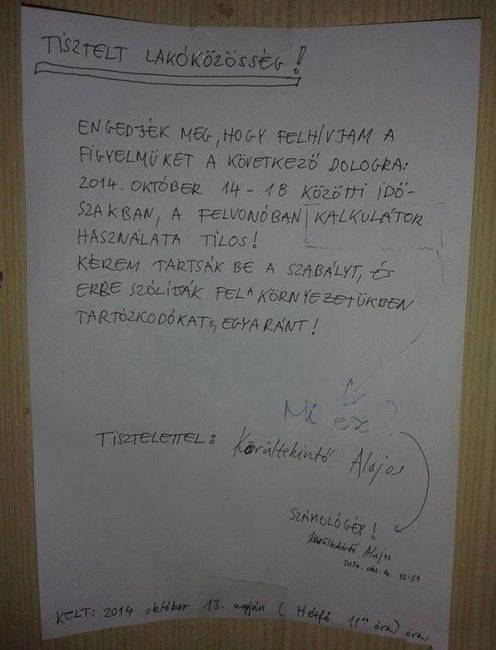 TISZTELT LAKÓKÖZÖSSÉG!
ENGEDJÉK MEG, HOGY FELHÍVJAM A
FIGYELMÜKET A KÖVETKEZŐ DOLOGRA:
2014. OKTÓBER 14-18 KÖZÖTTI IDŐ-
SZAKBAN, A FELVONÓBAN KALKULÁTOR
HASZNÁLATA TILOS!
KÉREM TARTSÁK BE A SZABÁLYT, ÉS
ERRE SZÓLÍTSÁK FEL A KÖRNYEZETÜKBEN
TARTÓZKODÓKAT, EGYARÁNT!
Mi ez?
TISZTELETTEL: Körültekintő Alajos
SZÁMOLÓGÉP!
Körültekintő Alajos
2014. okt. 14.
KELT: 2014 október 13. napján (Hétfő 11 óra) óra,